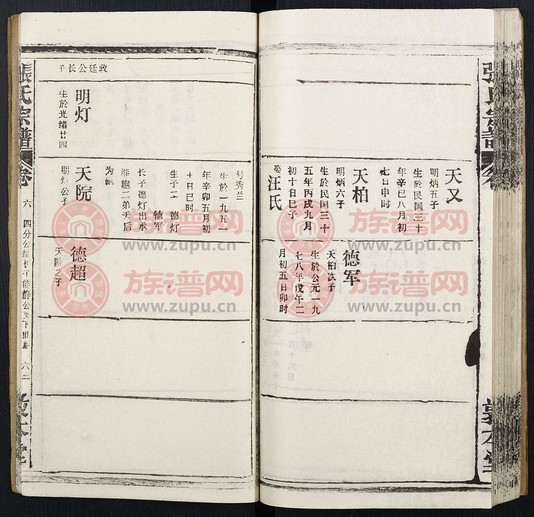 天又
明炳五子
生於民国三十
年辛巳八月初
七日申时
天柏
明炳六子
生於民国三十
五年丙戌九月
初十日巳子
汪氏
德军
天柏次子
生於公元一九
七八年戊午二
月初五日卯时
号秀兰
生於一九五一
年辛卯五月初
十日巳时
生子二 德灯
德军
长子德灯出承
继胞二弟天后
为嗣
政廷公长子
明灯
生於光绪廿四
天院
明灯公子
德超
張氏宗譜
卷
六
族谱网
www.zupu.cn
族谱网
www.zupu.cn
族谱网
www.zupu.cn
族谱网
www.zupu.cn